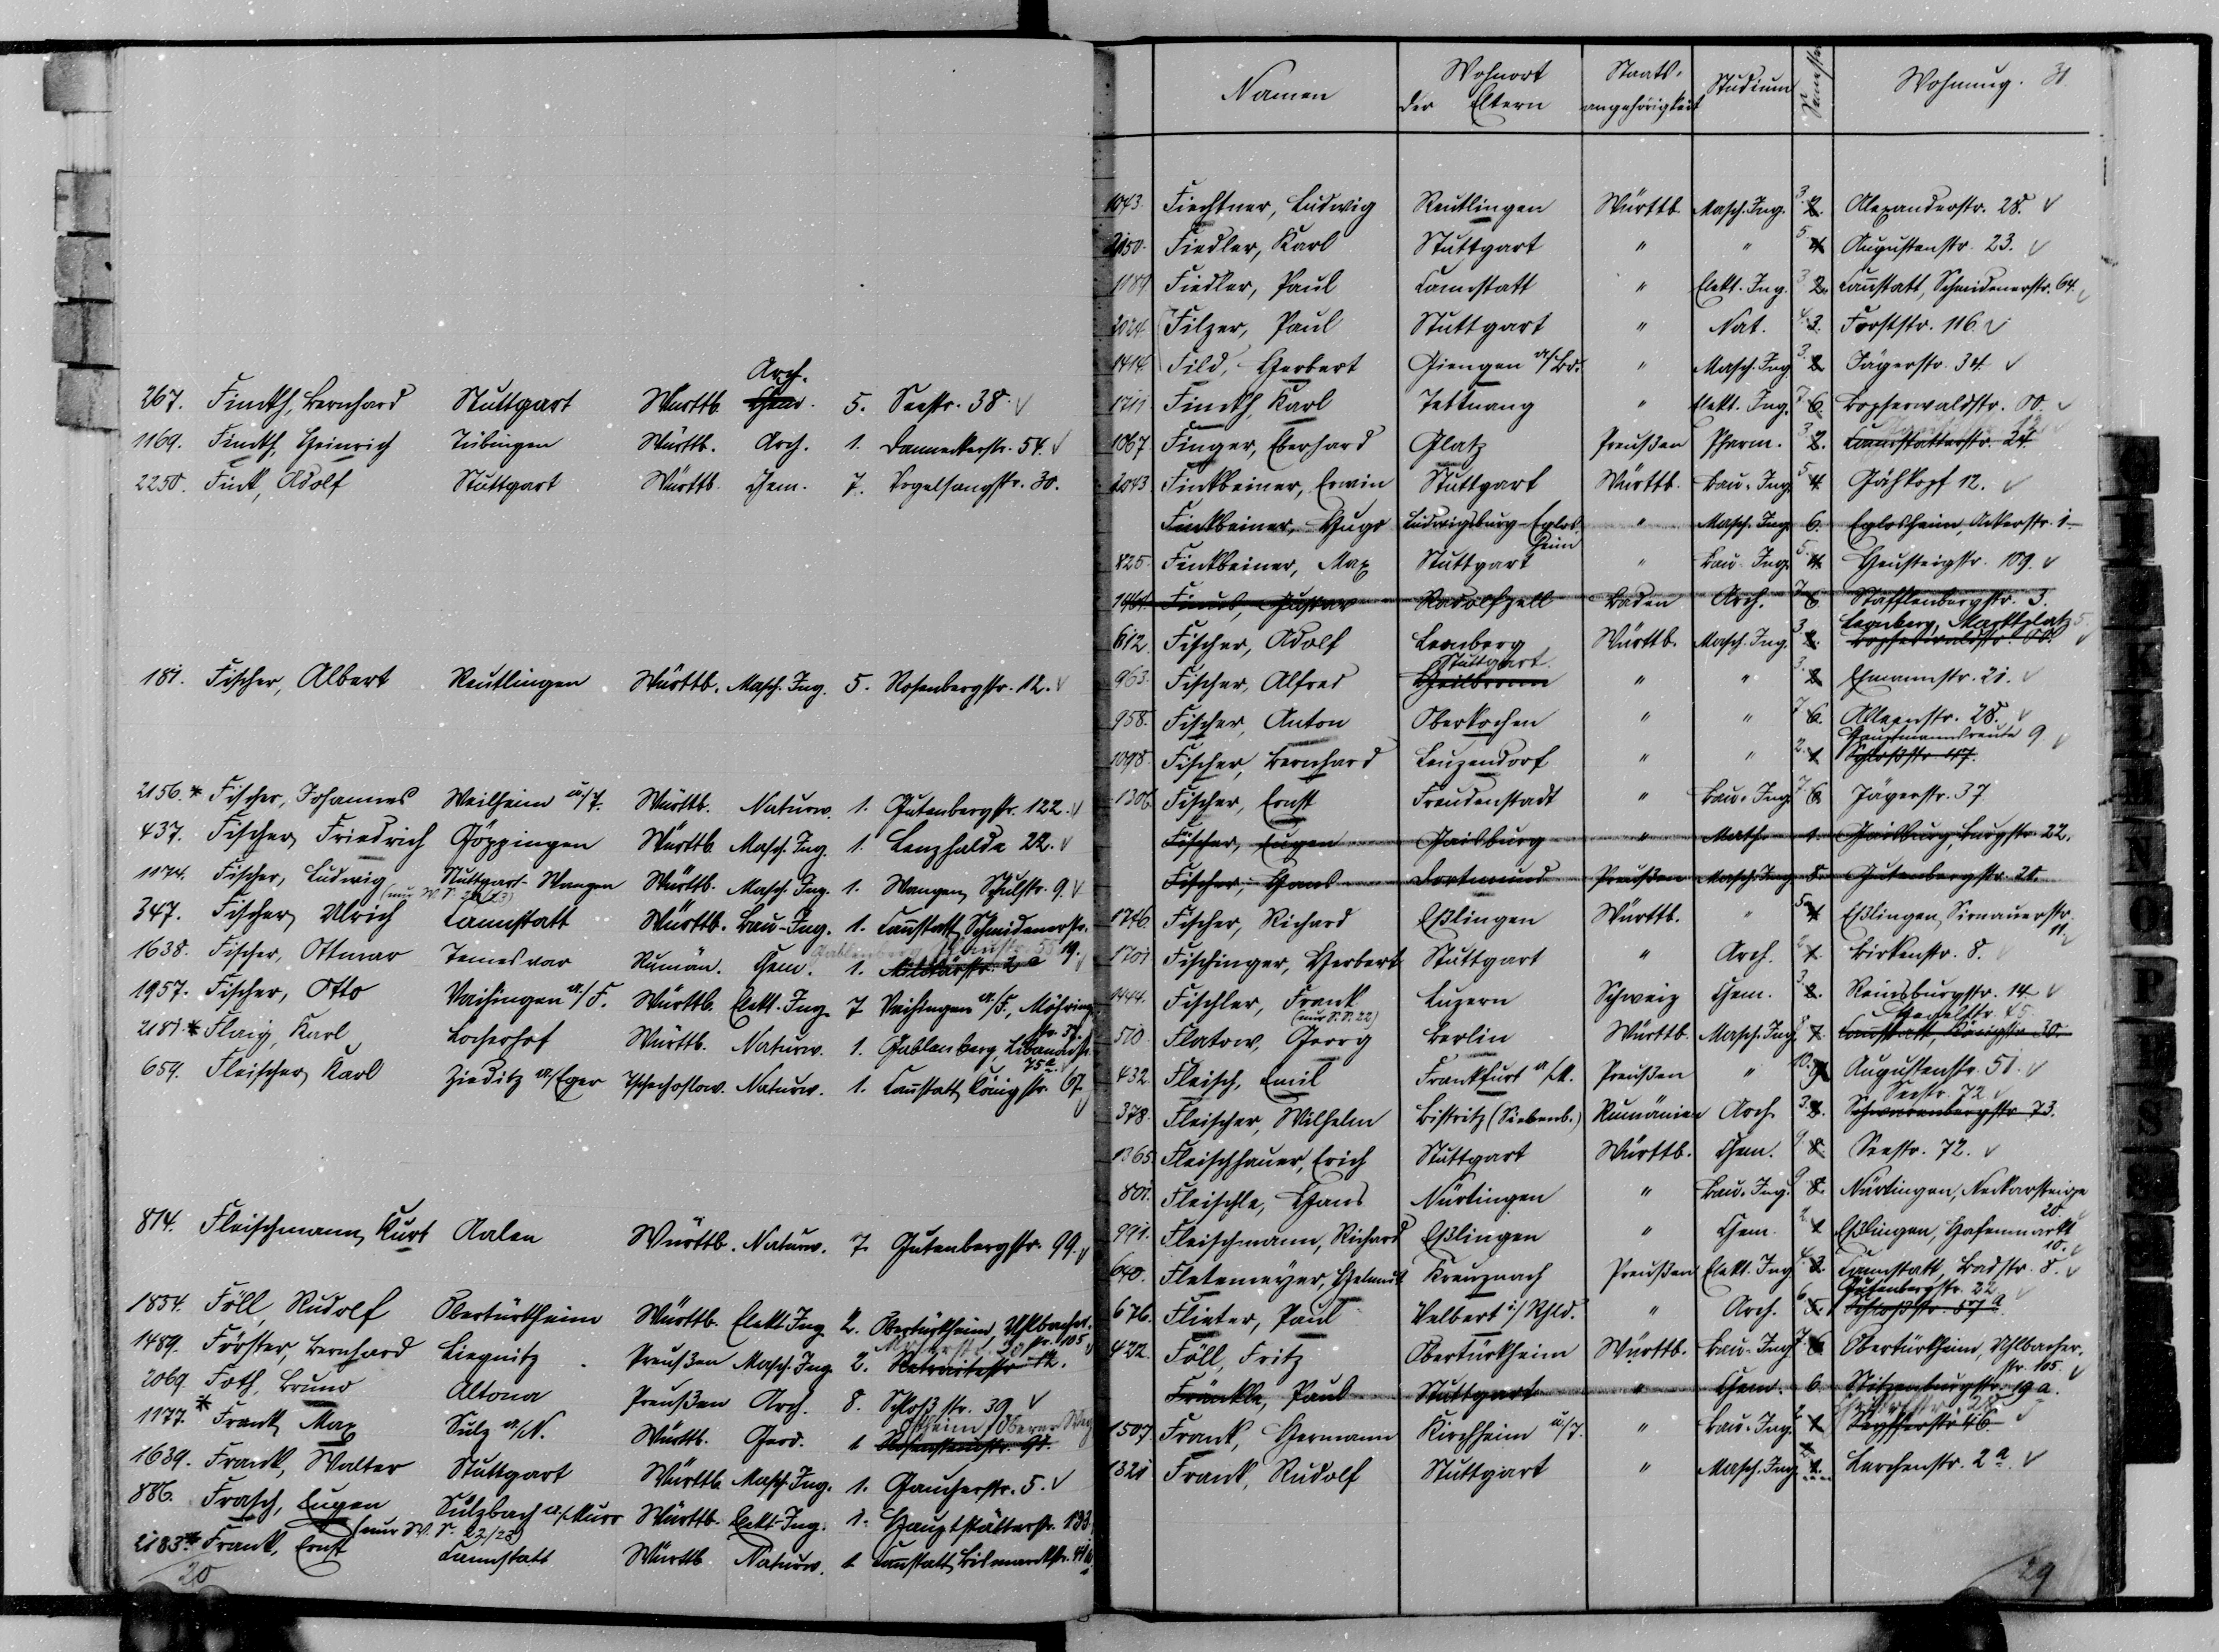 Arch.
267. Finckh, Bernhard Stuttgart Württb. Chem. 5. Seestr. 38. √
1169. Finckh, Heinrich Tübingen Württb. Arch. 1. Danneckerstr. 54. √
2250. Fink, Adolf Stuttgart Württb. Chem. 7. Vogelsangstr. 30.
181. Fischer, Albert Reutlingen Württb. Masch. Ing. 5. Rosenbergstr. 12. √
2156.* Fischer, Johannes Weilheim u/T. Württb. Naturw. 1. Gutenbergstr. 122. √
437. Fischer, Friedrich Göppingen Württb. Masch. Ing. 1. Lenzhalde 22. √
1174. Fischer, Ludwig Stuttgart-Wangen Württb. Masch. Ing. 1. Wangen, Schulstr. 9. √
347. Fischer, Ulrich Cannstatt Württb. Bau-Ing. 1. Canstatt, Schmidenerstr.
19.
1638. Fischer, Ottmar Temesvar Rumän. Chem. 1. Militärstr. 2a
1957. Fischer, Otto Vaihingen a/F. Württb. Elekt. Ing. 7 Vaihingen a/F., Möhring.
2181.* Flaig, Karl Locherhof Württb. Naturw. 1. Gablenberg, Libanonstr.
75a
659. Fleischer, Karl Zieditz a/Eger Tschechoslow. Naturw. 1. Canstatt, Königstr. 67.
814. Fleischmann, Kurt Aalen Württb. Naturw. 7. Gutenbergstr. 99. √
1854. Föll, Rudolf Obertürkheim Württb. Elekt Ing. 2. Obertürkheim, Uhlbacher-
str. 105
1489. Förster, Bernhard Liegnitz Preußen Masch. Ing. 2. Retraitestr. 12.
2069. Foth, Bruno Altona Preußen Arch. 8. Schloßstr. 39 √
1177.* Frank, Max Sulz a/N. Württb. Geod. 1
1639. Frank, Walter Stuttgart Württb. Masch. Ing. 1. Gaucherstr. 5. √
886. Frasch, Eugen Sulzbach a/Murr Württb. Elekt-Ing. 1. Hauptstätterstr. 133.
(nur W. S. 22/23)
2183* Frank, Ernst Cannstatt Württb. Naturw. 1 Canstatt, Bismarckstr. 41
20
Namen Wohnort der Eltern Staats-angehörigkeit Studium Semester Wohnung. 31
1043. Fiechtner, Ludwig Reutlingen Württb. Masch. Ing. 3 2. Alexanderstr. 28. √
2150. Fiedler, Karl Stuttgart " " 5 4 Augustenstr. 23. √
1189 Fiedler, Paul Cannstatt " Elekt. Ing. 3 2. Canstatt, Schmidenerstr. 64. √
2024. Filzer, Paul Stuttgart " Nat. 4. 3. Forststr. 116 √
1414. Fild, Herbert Giengen a/Br. " Masch. Ing. 3. 2. Jägerstr. 34 √
1711 Finckh, Karl Tettnang " Elekt. Ing. 7 6. Bopserwaldstr. √
1067. Finger, Eberhard Glatz Preußen Pharm. 3 2. Cannstatterstr. 24
2043 Finkbeiner, Erwin Stuttgart Württb. Bau-Ing. 5 4. Gähkopf 12. √
Finkbeiner, Hugo Ludwigsburg-Eglosheim " Masch. Ing. 6. Eglosheim, Ackerstr. 1
825. Finkbeiner, Max Stuttgart " Bau-Ing. 5. 4. Heusteigstr. 109. √
1461. Gustav Radolfzell Baden Arch. 7 6 Stafflenbergstr. 3.
Leonberg, Marktplatz 5.
612. Fischer, Adolf Leonberg Württb. Masch. Ing. 3 2. Bopserwaldstr.
Stuttgart.
963. Fischer, Alfred Heilbronn " " 3. 2 Ehmannstr. 21. √
958. Fischer, Anton Oberkochen " " 7 6. Alleenstr. 28. √
Hauptmannsreute 9 √
1098. Fischer, Bernhard Leuzendorf " " 2. 1 Schloßstr. 117.
1306. Fischer, Ernst Freudenstadt " Bau-Ing. 7 6. Jägerstr. 37
Fischer, Eugen Gaisburg " Math. 1. Gaisburg, Burgstr. 22.
Fischer, Hans Dortmund Preußen Masch. Ing. 8. Gutenbergstr. 28.
1746. Fischer, Richard Eßlingen Württb. " 5 4 Eßlingen, Sirnauerstr.
11 √
1701 Fischinger, Herbert Stuttgart " Arch. 2 1. Birkenstr. 8.
1444. Fischler, Frank Luzern Schweiz Chem. 3. 2. Reinsburgstr. 14 √
(nur S. S. 22)
510 Flatow, Georg Berlin Württb. Masch. Ing. 8 7. Cannstatt, Königstr. 30
432. Fleisch, Emil Frankfurt a/M. Preußen " 10. 9 Augustenstr. 51. √
Seestr. 72 √
378. Fleischer, Wilhelm Bistritz (Siebenb.) Rumänien Arch 3. 2. Schwarenbergstr. 73.
1365. Fleischhauer, Erich Stuttgart Württb. Chem. 9 8. Seestr. 72. √
801. Fleischle, Hans Nürtingen " Bau-Ing. 9 8. Nürtingen, Neckarsteige
20
991. Fleischmann, Richard Eßlingen " Chem 2 1 Eßlingen, Hafenmarkt
10. √
640. Fletemeyer, Helmut Kreuznach Preußen Elekt. Ing. 4. 3. Cannstatt, Badstr. 8. √
Gutenbergstr. 22 √
676. Flieter, Paul Velbert i/Rhld. " Arch. 6. 5. Schloßstr. 57a
422. Föll, Fritz Obertürkheim Württb. Bau-Ing. 7. 6. Obertürkheim, Uhlbacher-
str. 105. √
Fränkle, Paul Stuttgart " Chem. 6. Stitzenburgstr. 19a.
1507 Frank, Hermann Kirchheim u/T. " Bau-Ing. 2 1 Seyfferstr. 46
1321 Frank, Rudolf Stuttgart " Masch. Ing. Lerchenstr. 2a √
29